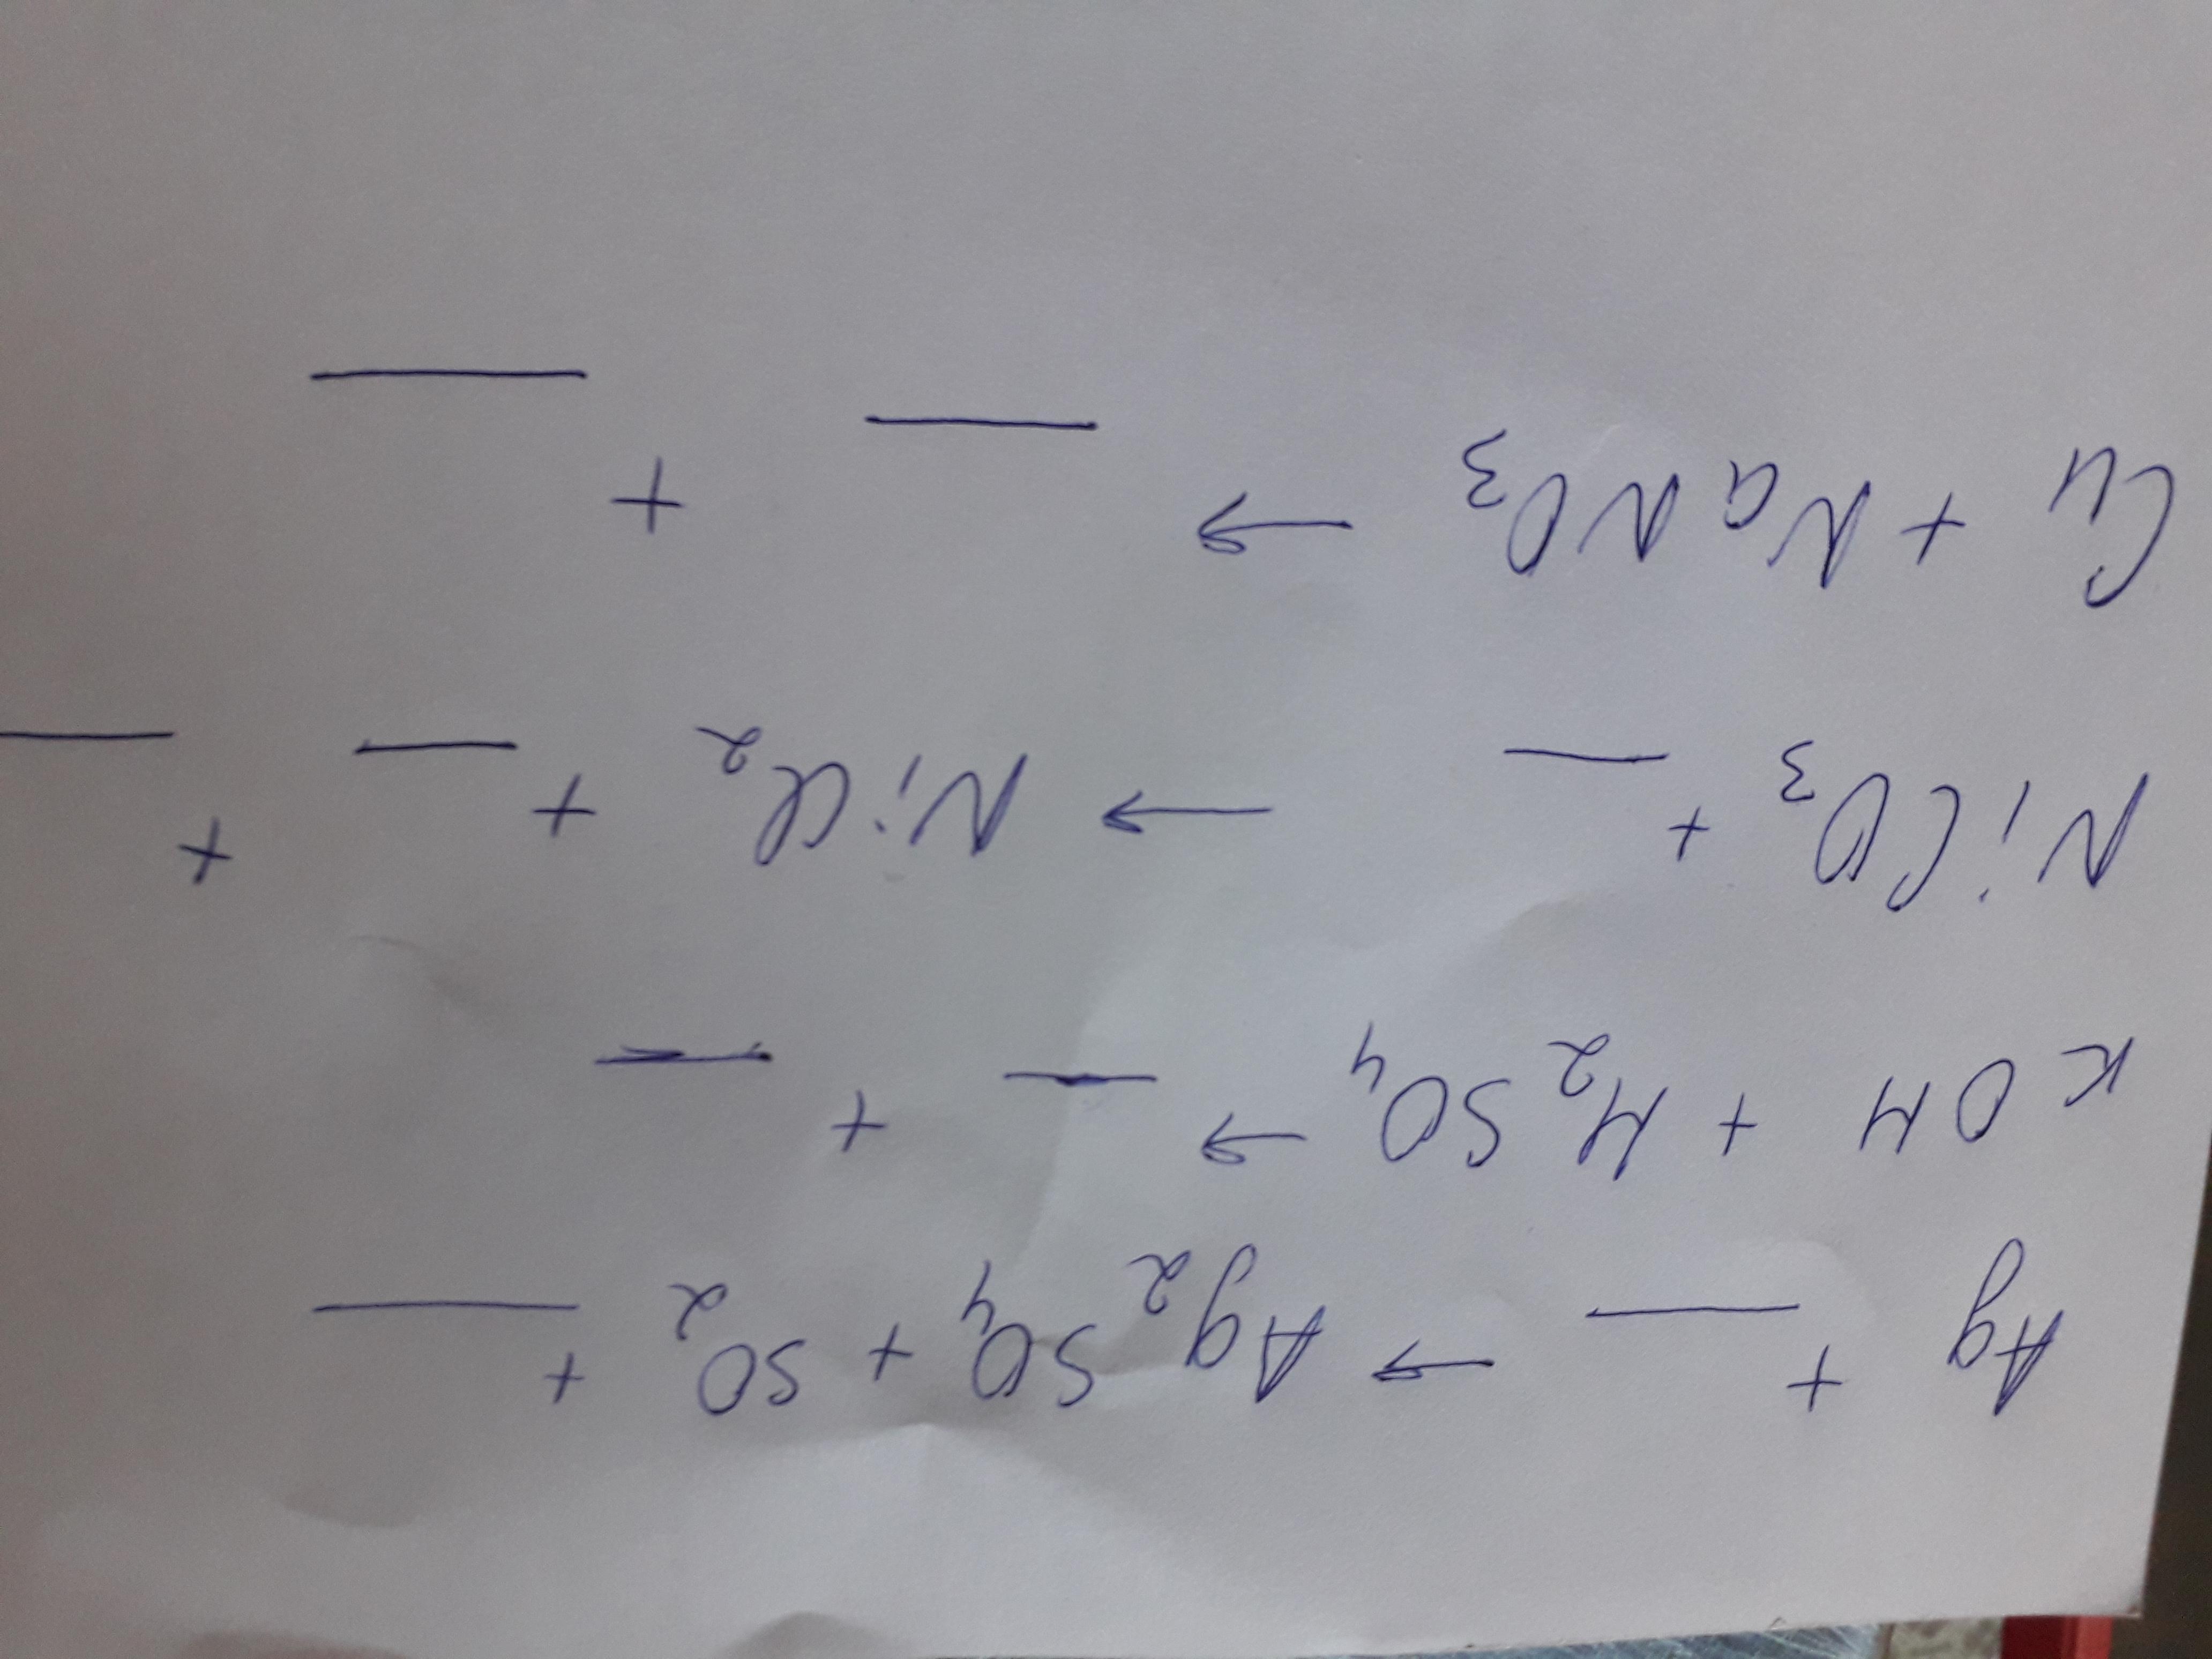 Ag + ____ → Ag₂SO₄ + SO₂ + ____
KOH + H₂SO₄ → ____ + ____
NiCO₃ + ____ → NiCl₂ + ____ + ____
Cu + NaNO₃ → ____ + ____